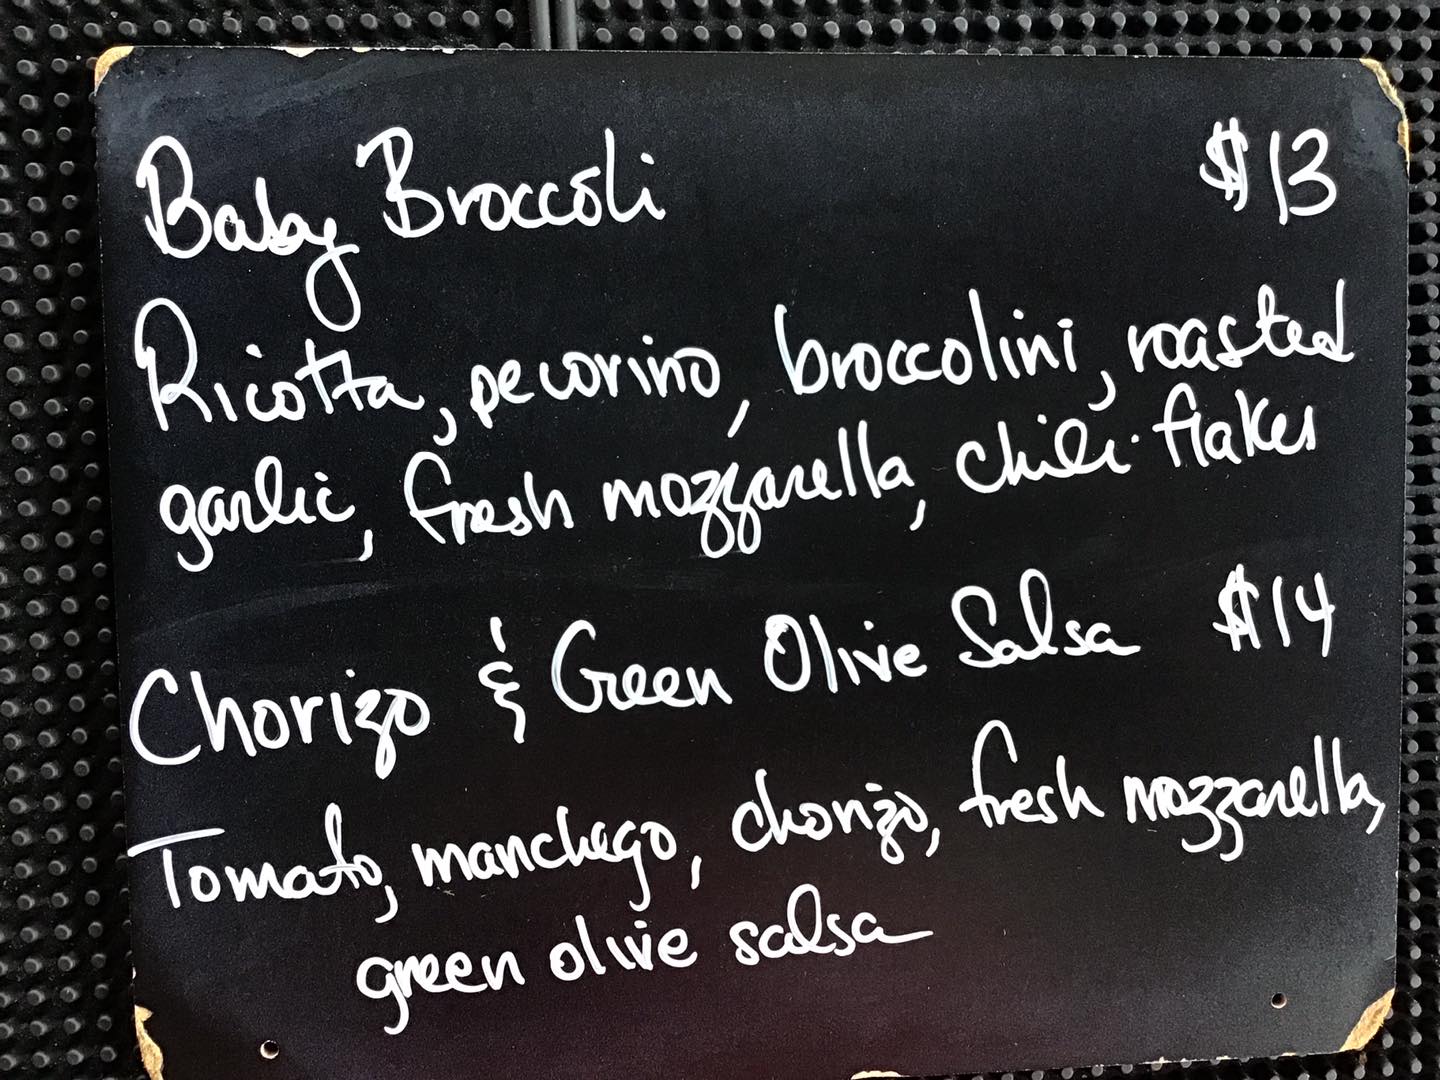 Baby Broccoli $13
Ricotta, pecorino, broccolini, roasted
garlic, fresh mozzarella, chili flakes
Chorizo & Green Olive Salsa $14
Tomato, manchego, chorizo, fresh mozzarella,
green olive salsa